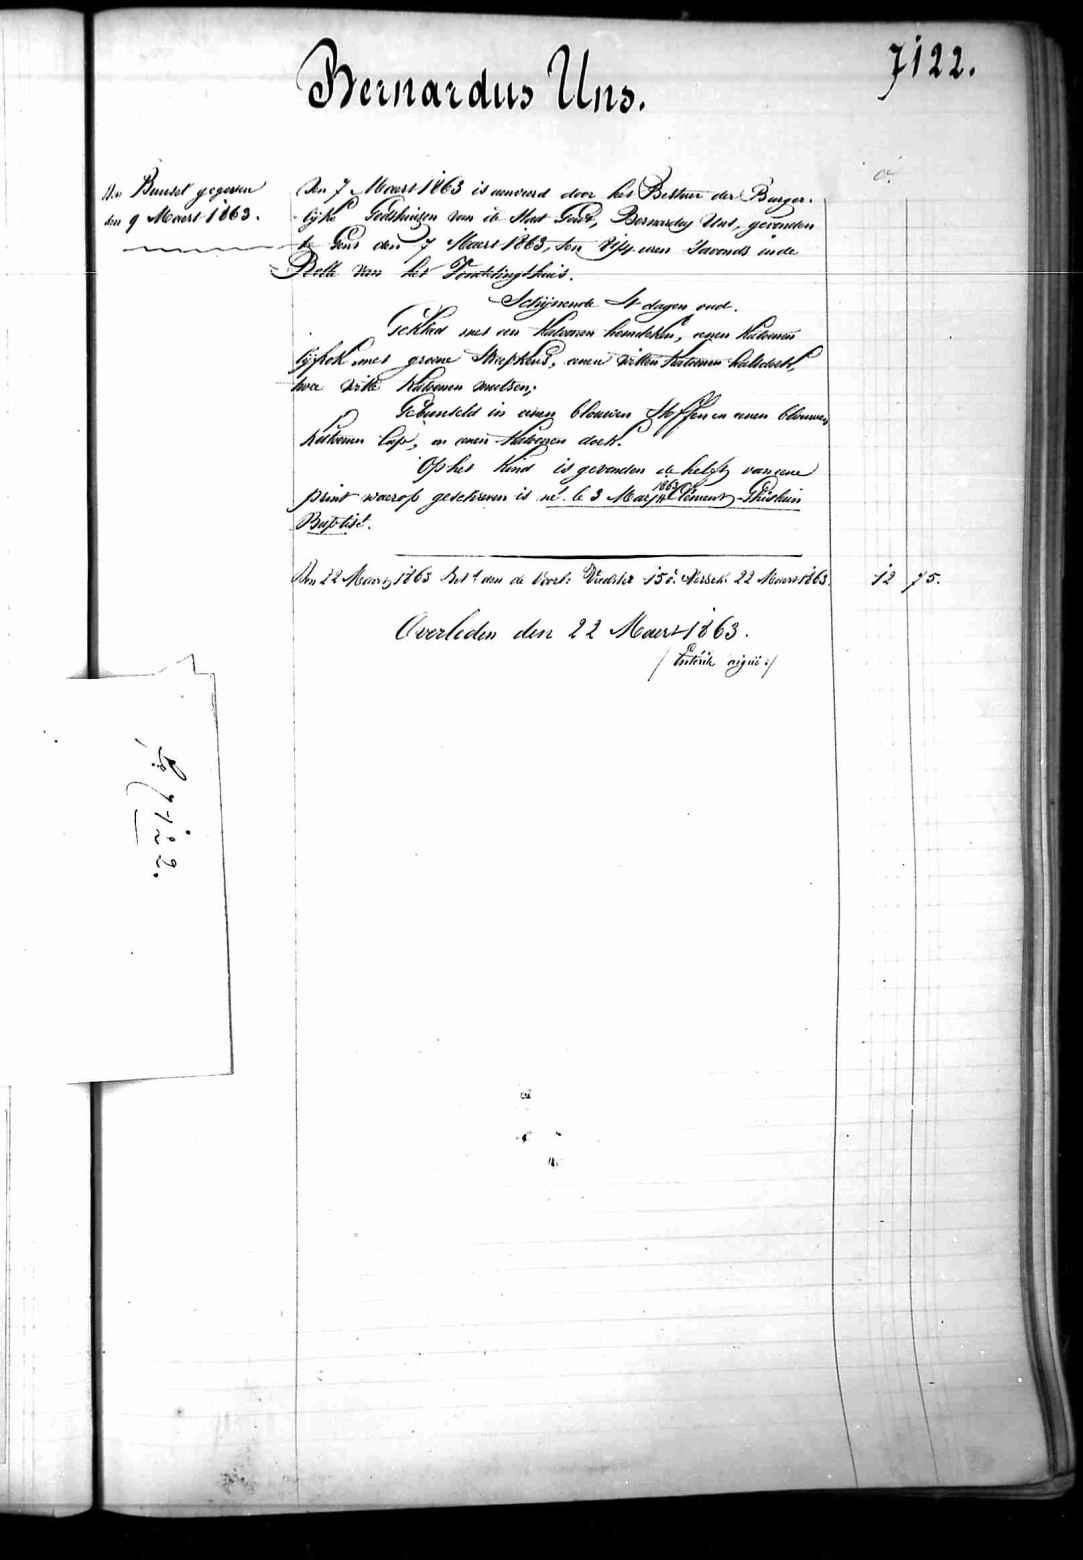 7122.
Bernardus Uns.
Den Bunsel gegeven
den 9 Maert 1863.
Den 7 Maert 1863 is aenveerd door het Bestuur der Burger-
lyke Godshuizen van de Stad Gend, Bernardus Uns, gevonden
te Gend den 7 Maert 1863, ten uren Savonds in de
Rolle van het Vondelingshuis.
Schijnende 4 dagen oud.
Gekleed met een Katoenen hemdeken, eenen Katoenen
lijfrok met groene streepkens, eenen witten Katoenen halsdoek,
twee witte Katoenen mutsen;
Gebunseld in eenen blauwen stoffen en eenen blauwen
Katoenen lap, en eenen Katoenen doek.
Op het Kind is gevonden de helft van eene
print waerop geschreven is né le 3 Mars 1863 Clement Ghislain
Baptist.
Den 22 Maert 1863 aen de 22 Maert 1863. 12 75.
Overleden den 22 Maert 1863.
/ Entérite aiguë :/
7122.